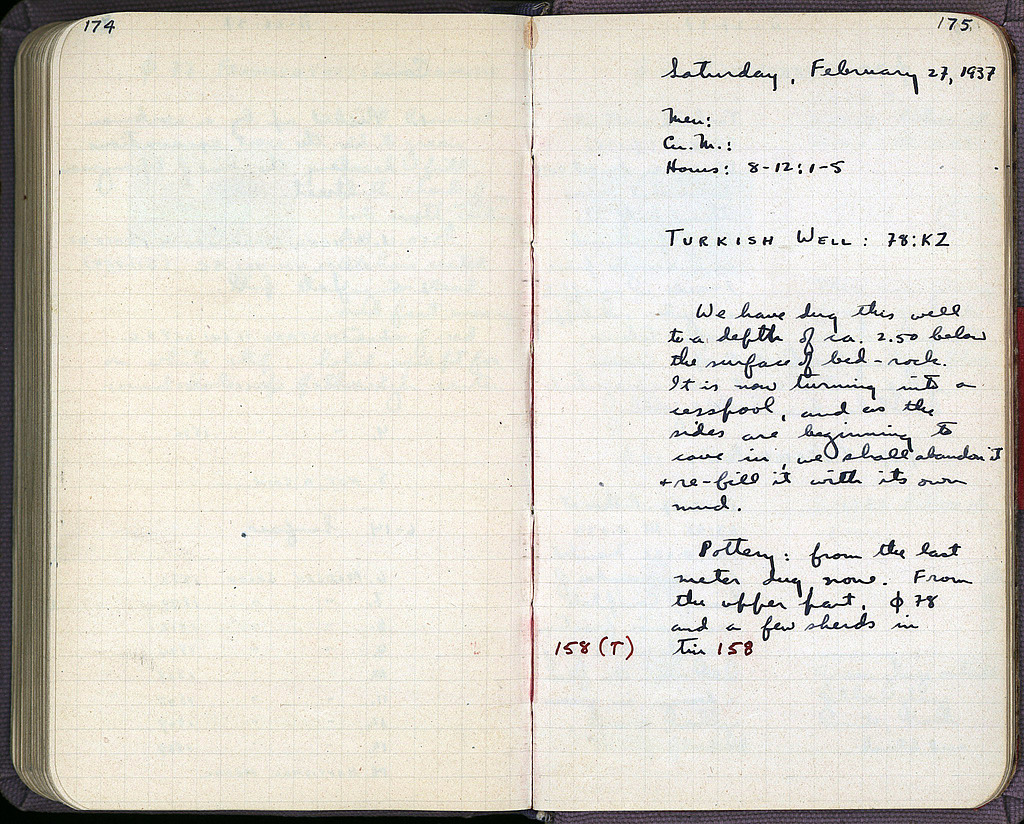 174
175
Saturday, February 27, 1937
Men:
Cu. M.:
Hours: 8-12:1-5
TURKISH WELL: 78:KZ
We have dug this well
to a depth of ca. 2.50 below
the surface of bed-rock.
It is now turning into a
cesspool, and as the
sides are beginning to
cave in, we shall abandon it
+ re-fill it with its own
mud.
Pottery: from the last
meter dug none. From
the upper part, ϕ 78
and a few sherds in
158 (T) tin 158